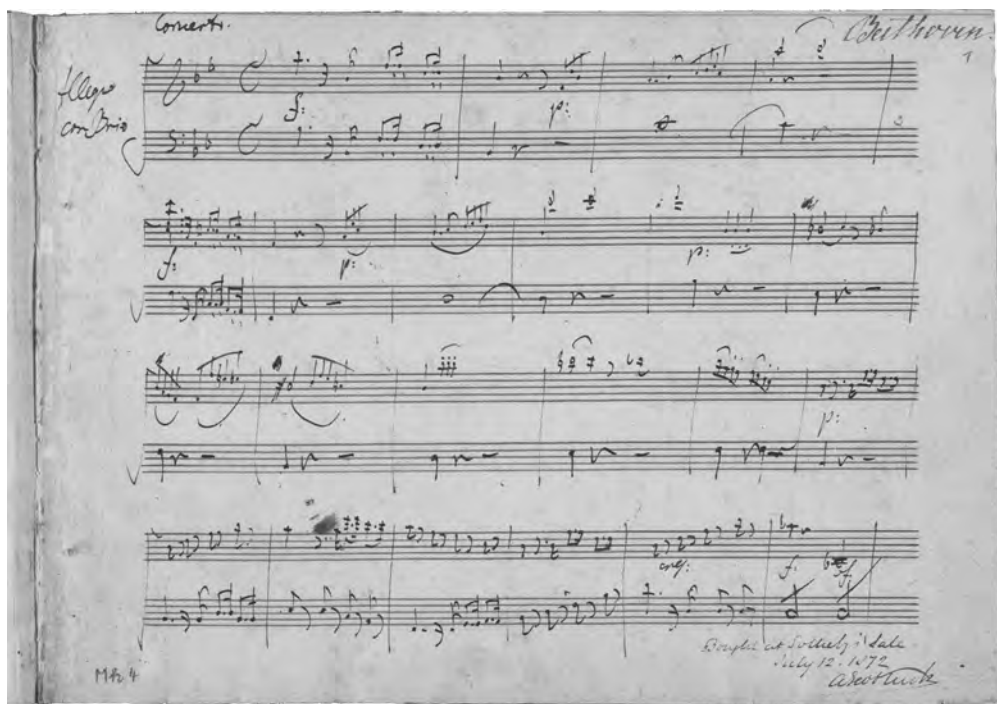 Concerto.
Beethoven.
1
Allegro
con Brio
f:
p:
f:
p:
p:
p:
f:
f:
Bought at Sotheby's Sale
July 12. 1872
MH 4